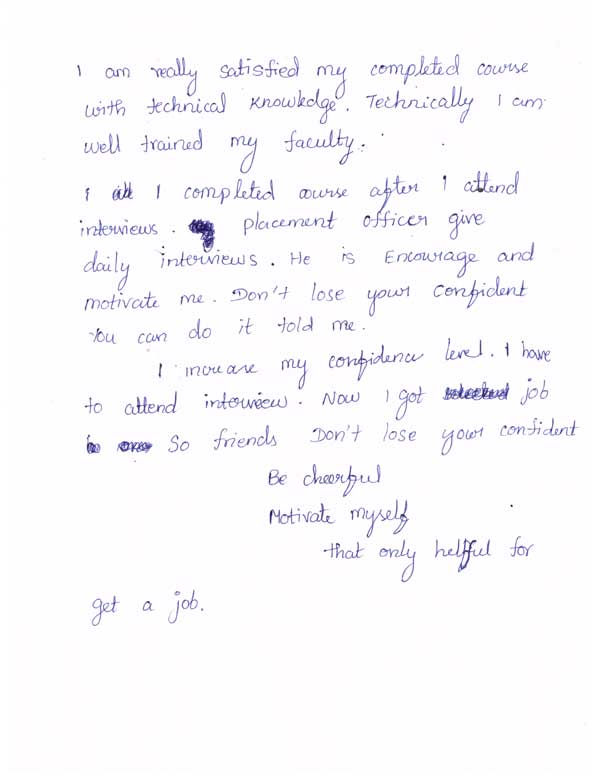 I am really satisfied my completed course
with technical knowledge. Technically I am
well trained my faculty.
I completed course after I attend
interviews. placement officer give
daily interviews. He is Encourage and
motivate me. Don't lose your confident
You can do it told me.
I increase my confidence level. I have
to attend interview. Now I got job
So friends Don't lose your confident
Be cheerful
Motivate myself
that only helpful for
get a job.